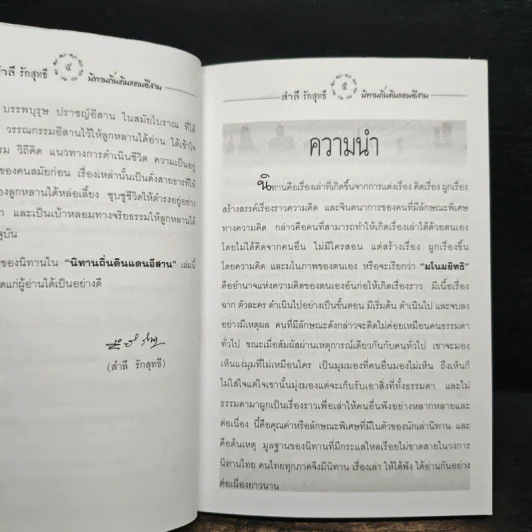 สำลี รักสุทธี ๔ นิทานถิ่นดินแดนอีสาน
บรรพบุรุษ ปราชญ์อีสาน ในสมัยโบราณ ที่ได้
วรรณกรรมอีสานไว้ให้ลูกหลานได้อ่าน ได้เข้าใจ
วิถีคิด แนวทางการดำเนินชีวิต ความเป็นอยู่
ของคนสมัยก่อน เรื่องเหล่านั้นเป็นดั่งสายธารที่ได้
ลูกหลานได้หล่อเลี้ยง ชุบชูชีวิตให้ดำรงอยู่อย่าง
และเป็นเบ้าหลอมทางจริยธรรมให้ลูกหลานได้
ของนิทานใน "นิทานถิ่นดินแดนอีสาน" เล่มนี้
แก่ผู้อ่านได้เป็นอย่างดี
(สำลี รักสุทธี)
สำลี รักสุทธี ๕ นิทานถิ่นดินแดนอีสาน
ความนำ
นิทานคือเรื่องเล่าที่เกิดขึ้นจากการแต่งเรื่อง คิดเรื่อง ผูกเรื่อง
สร้างสรรค์เรื่องราวความคิด และจินตนาการของคนที่มีลักษณะพิเศษ
ทางความคิด กล่าวคือคนที่สามารถทำให้เกิดเรื่องเล่าได้ด้วยตนเอง
โดยไม่ได้คิดจากคนอื่น ไม่มีใครสอน แต่สร้างเรื่อง ผูกเรื่องขึ้น
โดยความคิด และมโนภาพของตนเอง หรือจะเรียกว่า "มโนมยิทธิ"
คืออำนาจแห่งความคิดของตนเองอันก่อให้เกิดเรื่องราว มีเนื้อเรื่อง
ฉาก ตัวละคร ดำเนินไปอย่างเป็นขั้นตอน มีเริ่มต้น ดำเนินไป และจบลง
อย่างมีเหตุผล คนที่มีลักษณะดังกล่าวจะคิดไม่ค่อยเหมือนคนธรรมดา
ทั่วไป ขณะเมื่อสัมผัสผ่านเหตุการณ์เดียวกันกับคนทั่วไป เขาจะมอง
เห็นแง่มุมที่ไม่เหมือนใคร เป็นมุมมองที่คนอื่นมองไม่เห็น ถึงเห็นก็
ไม่ใส่ใจแต่ใจเขานั้นมุ่งมองแต่จะเก็บรับเอาสิ่งที่ทั้งธรรมดา และไม่
ธรรมดามาผูกเป็นเรื่องราวเพื่อเล่าให้คนอื่นฟังอย่างหลากหลายและ
ต่อเนื่อง นี้คือคุณค่าหรือลักษณะพิเศษที่มีในตัวของนักเล่านิทาน และ
คือต้นเหตุ มูลฐานของนิทานที่มีกระแสไหลเรื่อยไม่ขาดสายในวงการ
นิทานไทย คนไทยทุกภาคจึงมีนิทาน เรื่องเล่า ให้ได้ฟัง ได้อ่านกันอย่าง
ต่อเนื่องยาวนาน